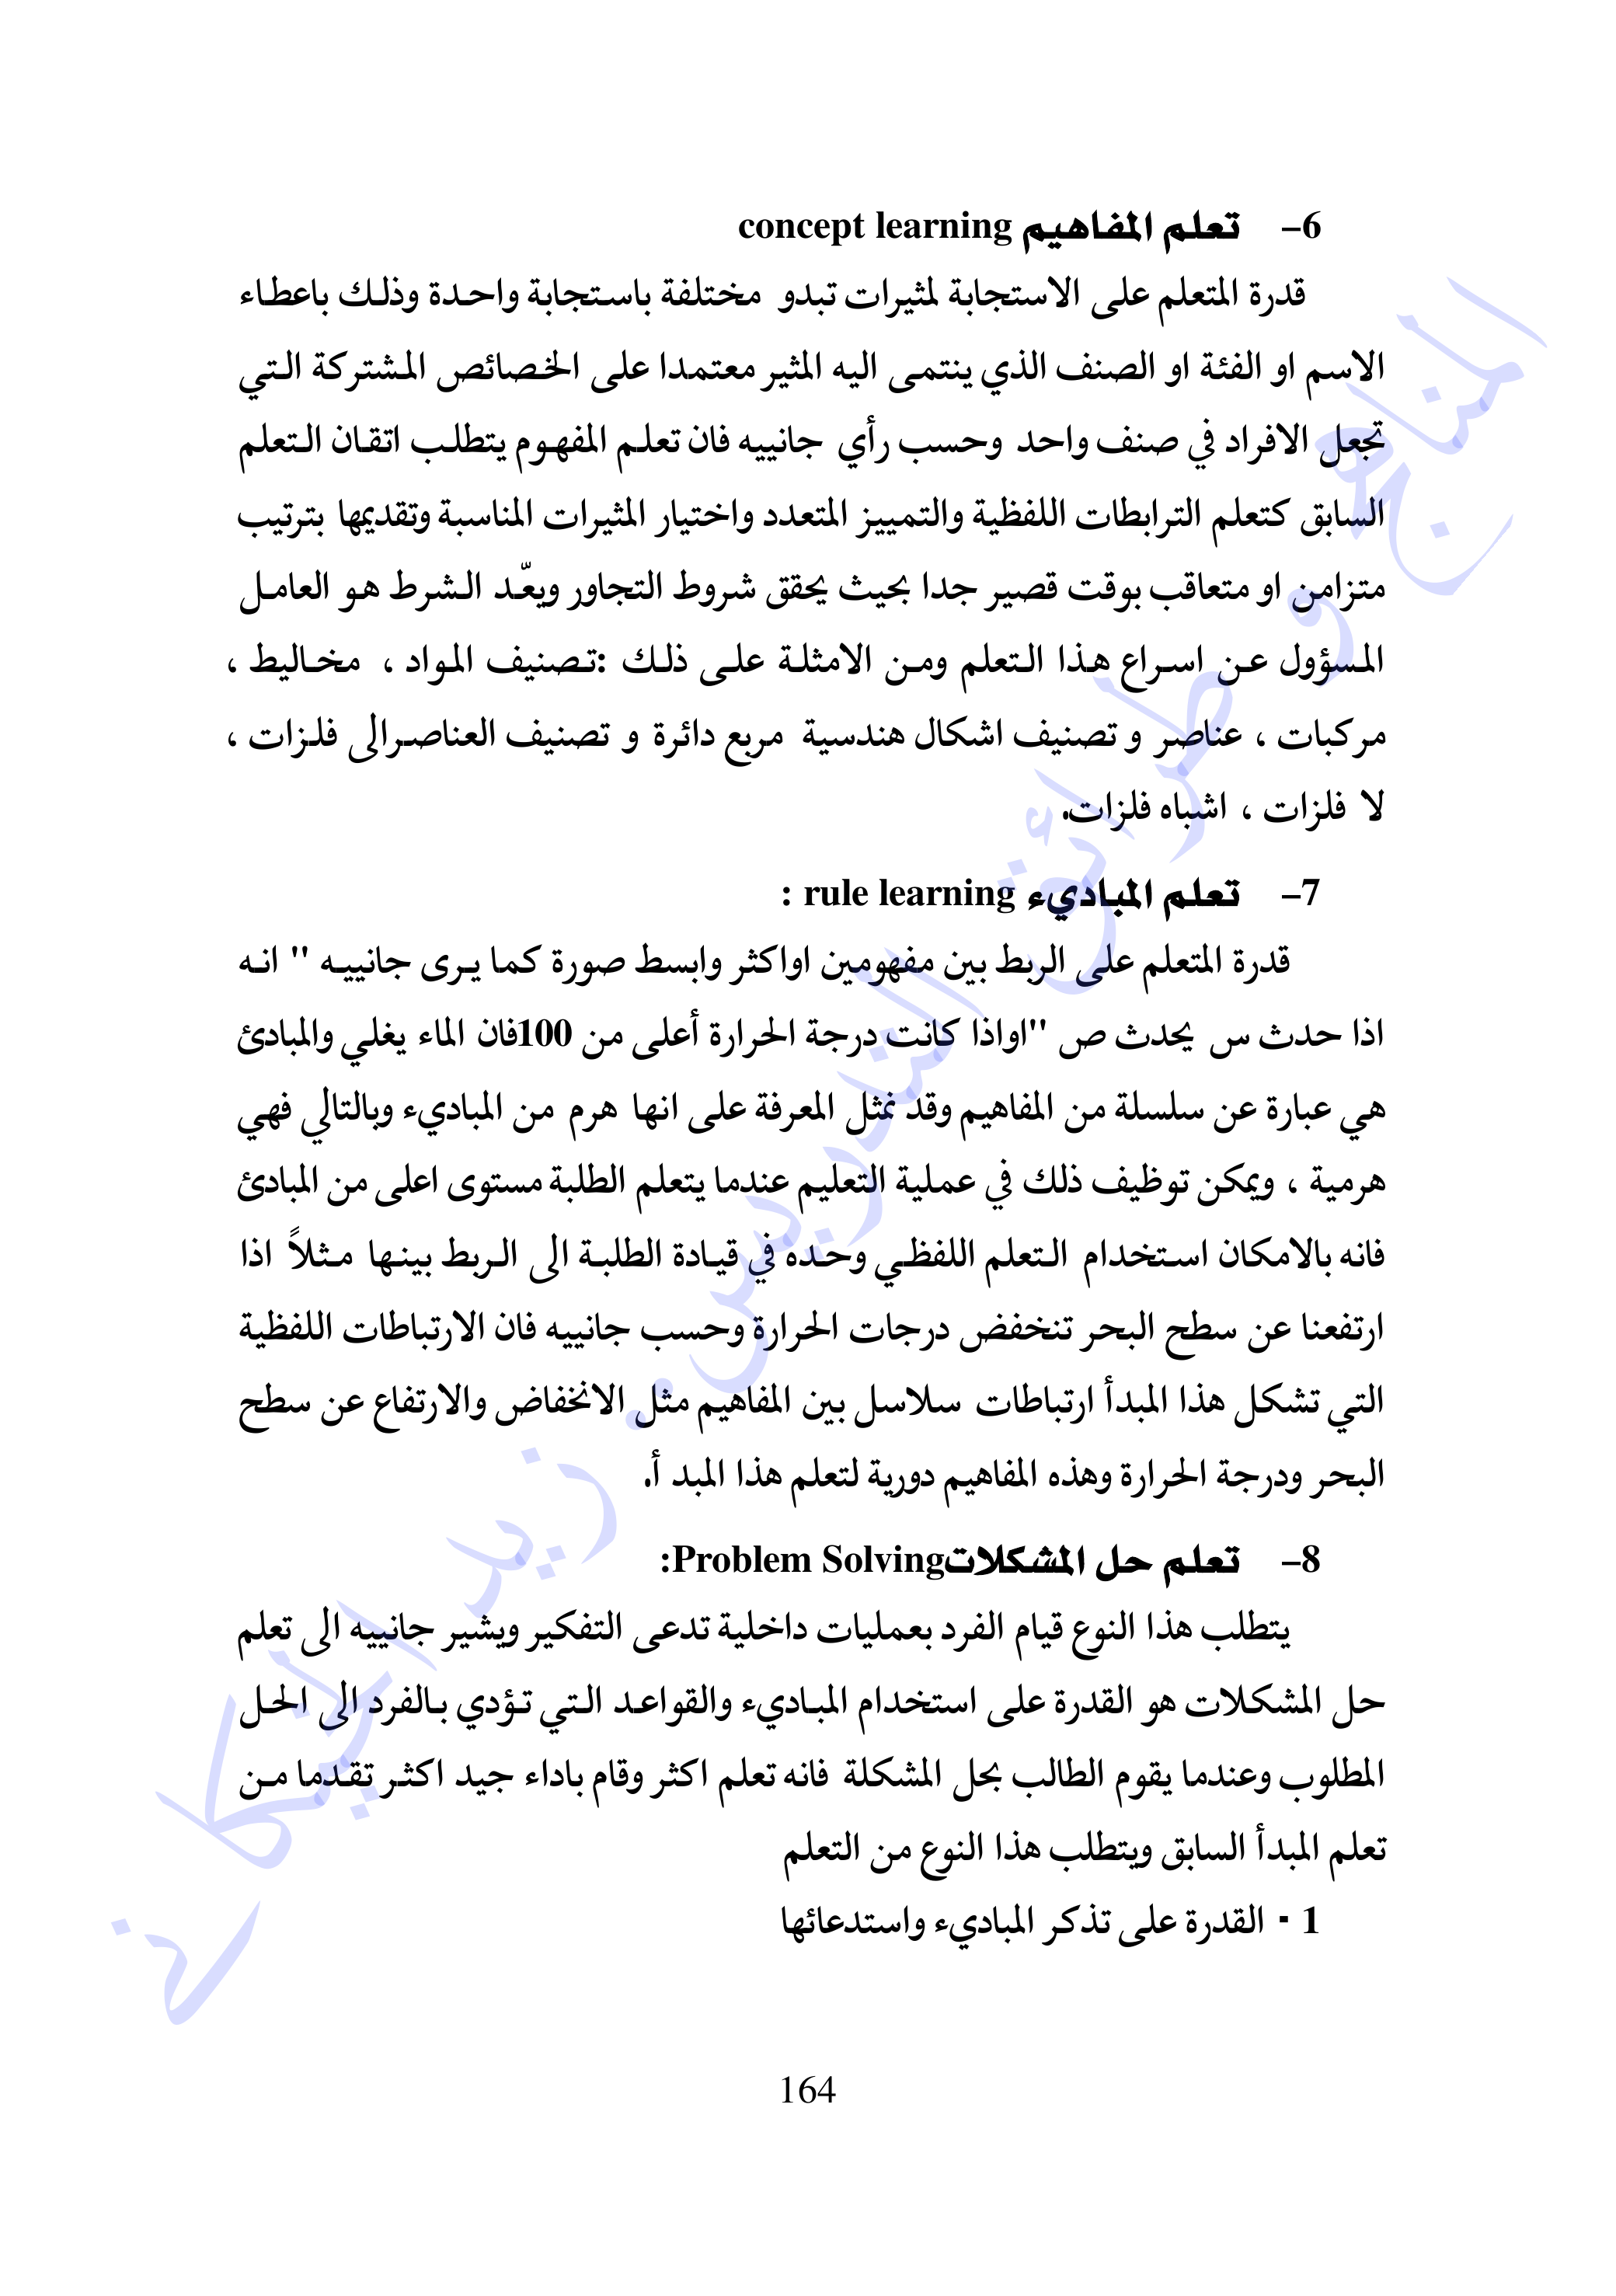 6- تعلم المفاهيم concept learning
قدرة المتعلم على الاستجابة لمثيرات تبدو مختلفة باستجابة واحدة وذلك باعطاء
الاسم او الفئة او الصنف الذي ينتمى اليه المثير معتمدا على الخصائص المشتركة التي
تجعل الافراد في صنف واحد وحسب رأي جانييه فان تعلم المفهوم يتطلب اتقان التعلم
السابق كتعلم الترابطات اللفظية والتمييز المتعدد واختيار المثيرات المناسبة وتقديمها بترتيب
متزامن او متعاقب بوقت قصير جدا بحيث يحقق شروط التجاور ويعّد الشرط هو العامل
المسؤول عن اسراع هذا التعلم ومن الامثلة على ذلك :تصنيف المواد ، مخاليط ،
مركبات ، عناصر و تصنيف اشكال هندسية مربع دائرة و تصنيف العناصرالى فلزات ،
لا فلزات ، اشباه فلزات.
7- تعلم المباديء rule learning :
قدرة المتعلم على الربط بين مفهومين اواكثر وابسط صورة كما يرى جانييه " انه
اذا حدث س يحدث ص "اواذا كانت درجة الحرارة أعلى من 100فان الماء يغلي والمبادئ
هي عبارة عن سلسلة من المفاهيم وقد نمثل المعرفة على انها هرم من المباديء وبالتالي فهي
هرمية ، ويمكن توظيف ذلك في عملية التعليم عندما يتعلم الطلبة مستوى اعلى من المبادئ
فانه بالامكان استخدام التعلم اللفظي وحده في قيادة الطلبة الى الربط بينها مثلاً اذا
ارتفعنا عن سطح البحر تنخفض درجات الحرارة وحسب جانييه فان الارتباطات اللفظية
التي تشكل هذا المبدأ ارتباطات سلاسل بين المفاهيم مثل الانخفاض والارتفاع عن سطح
البحر ودرجة الحرارة وهذه المفاهيم دورية لتعلم هذا المبد أ.
8- تعلم حل المشكلاتProblem Solving:
يتطلب هذا النوع قيام الفرد بعمليات داخلية تدعى التفكير ويشير جانييه الى تعلم
حل المشكلات هو القدرة على استخدام المباديء والقواعد التي تؤدي بالفرد الى الحل
المطلوب وعندما يقوم الطالب بحل المشكلة فانه تعلم اكثر وقام باداء جيد اكثر تقدما من
تعلم المبدأ السابق ويتطلب هذا النوع من التعلم
1 - القدرة على تذكر المباديء واستدعائها
164